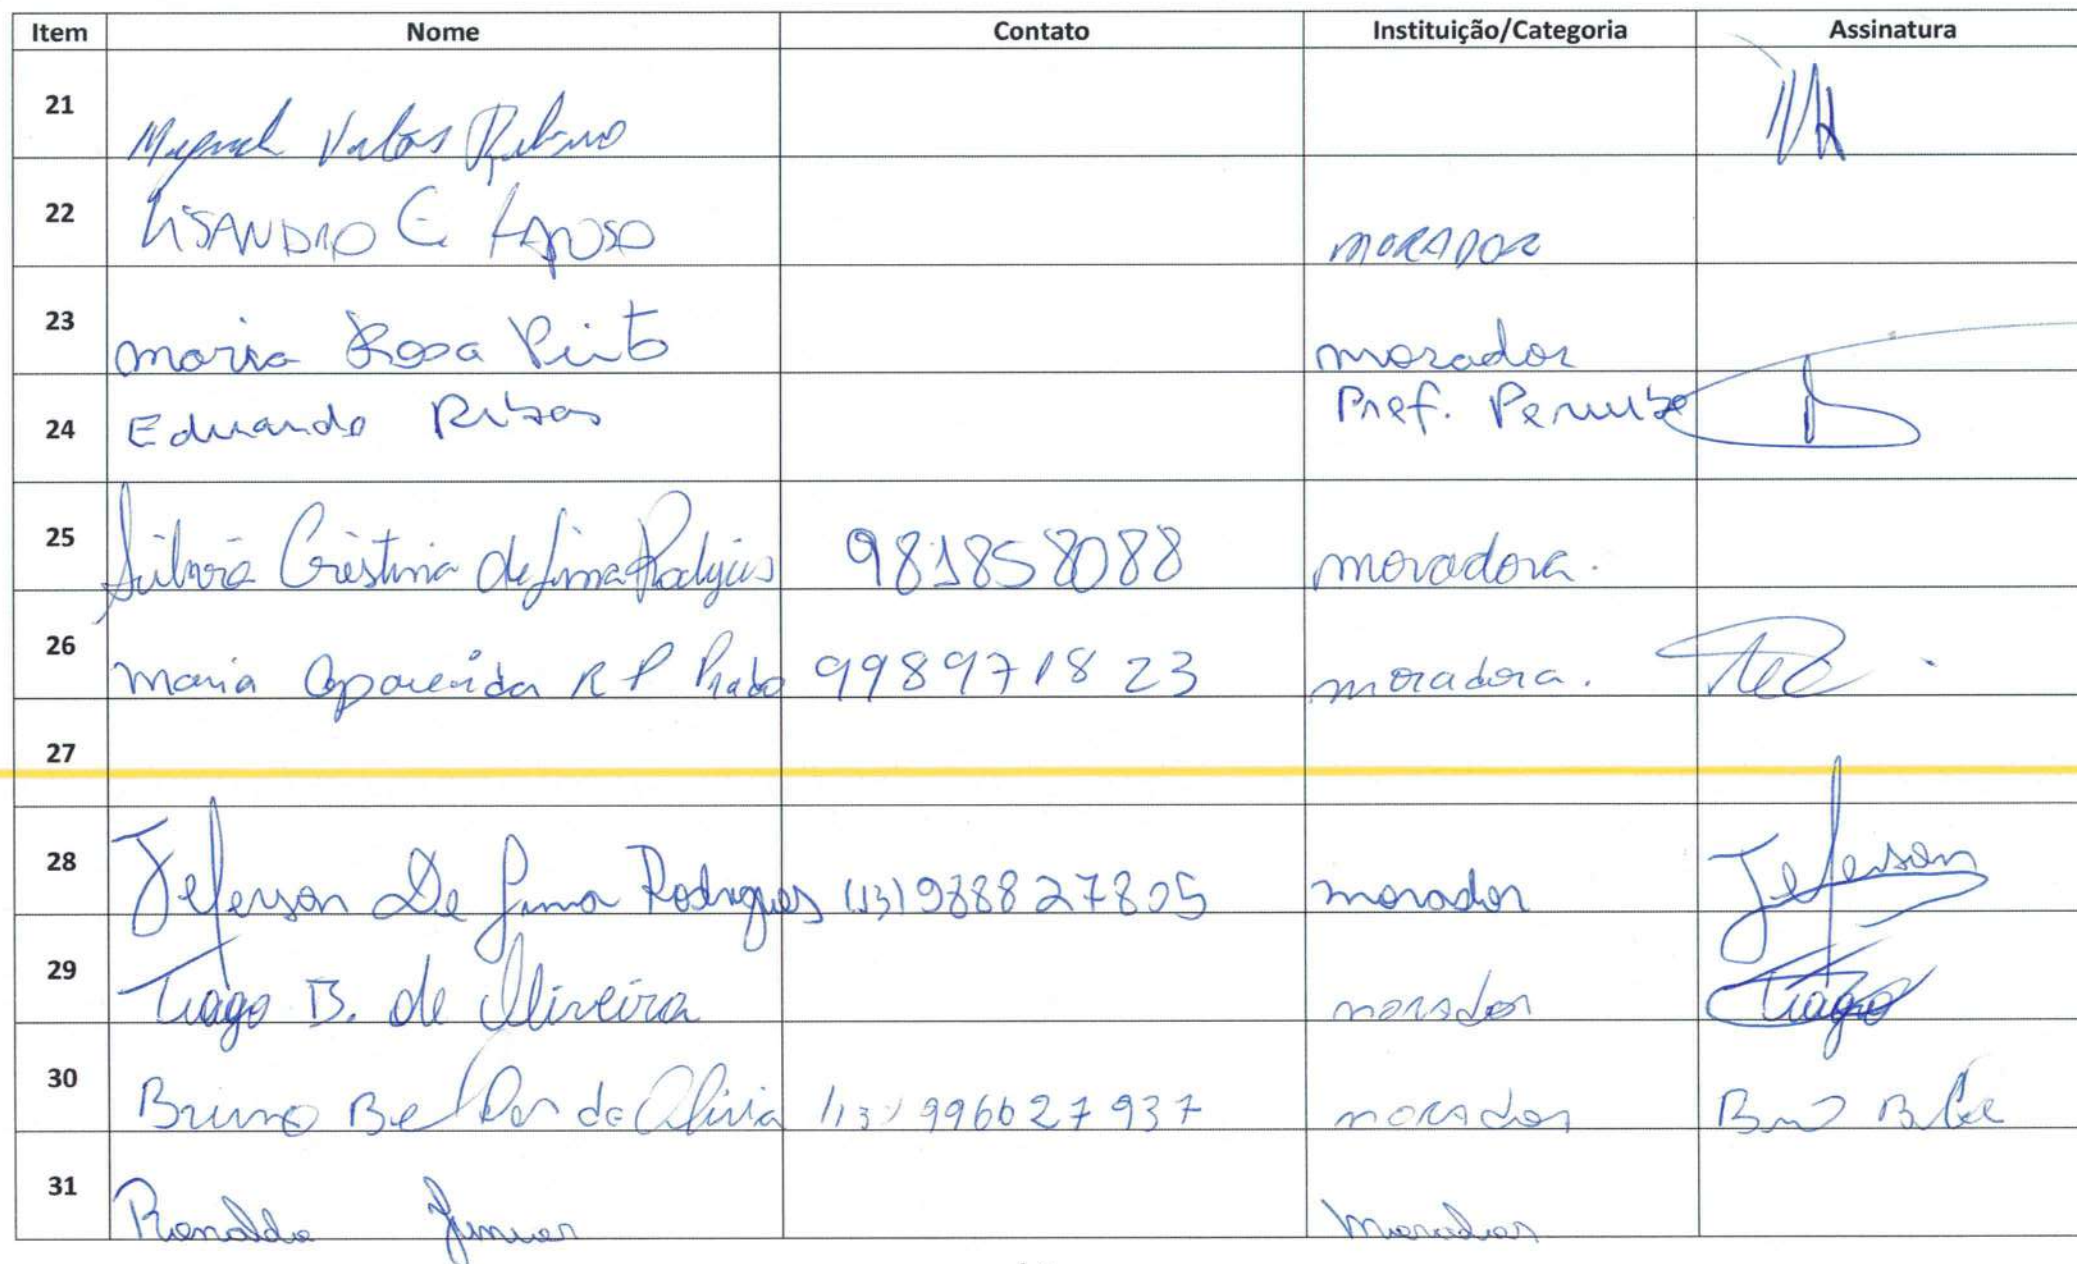 Item Nome Contato Instituição/Categoria Assinatura
21 Miguel
22 LISANDRO C MORADOR
23 maria Rosa Pinto morador
24 Eduardo Ribas Pref. Peruibe
25 Silvia Cristina de Lima 981858088 moradora.
26 maria Aparecida R P Prado 998971823 moradora.
27
28 Jeferson De Lima Rodrigues (13) 988827805 morador Jeferson
29 Tiago B. de Oliveira morador Tiago
30 Bruno (13) 996627937 morador
31 Ronaldo Junior Morador